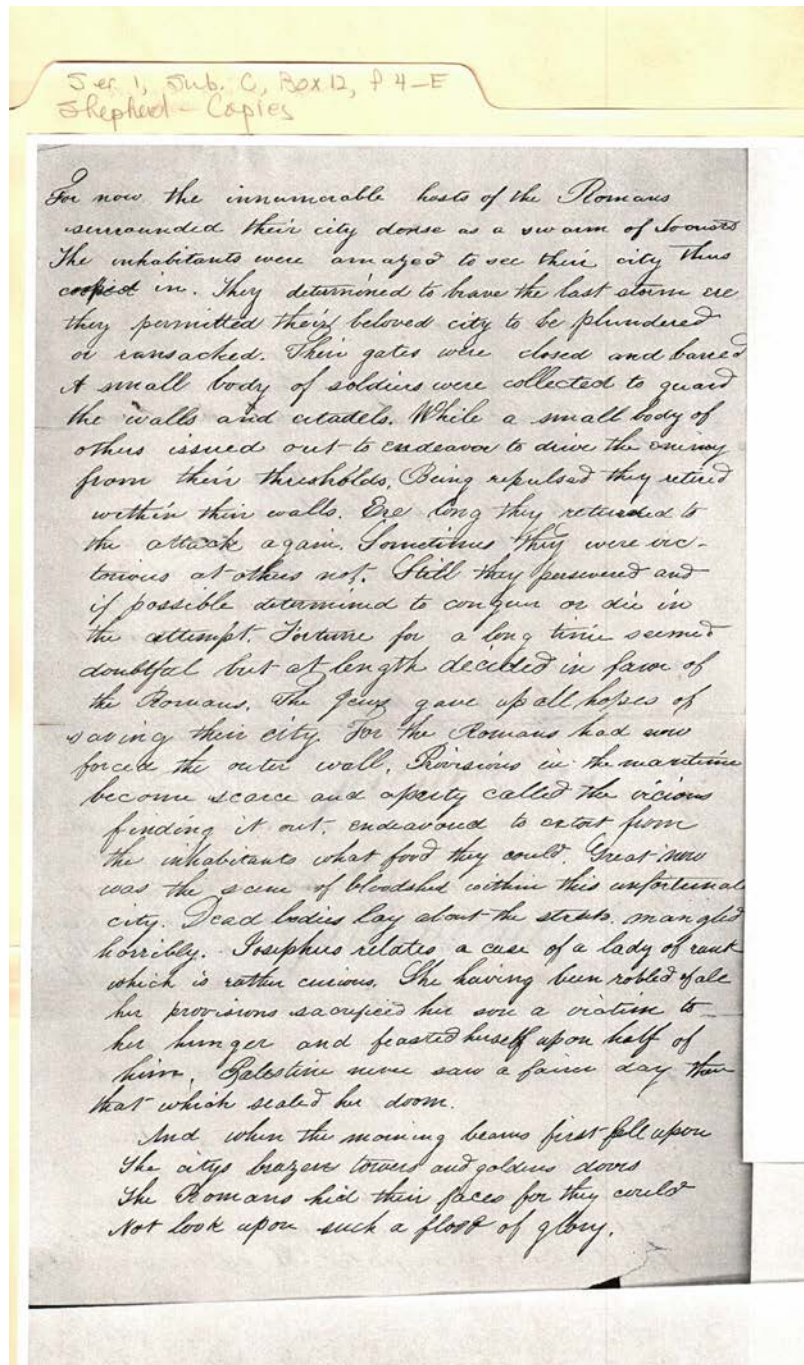 Ser 1, Sub. C, Box 12, f 4-E
Shepherd - Copies
For now the innumerable hosts of the Romans
surrounded their city dense as a swarm of locusts
The inhabitants were amazed to see their city thus
in. They determined to brave the last storm ere
they permitted their beloved city to be plundered
or ransacked. Their gates were closed and barred
A small body of soldiers were collected to guard
the walls and citadels. While a small body of
others issued out to endeavor to drive the enimy
from their thresholds. Being repulsed they retired
within their walls. Ere long they returned to
the attack again. Sometimes they were vic-
torious at others not. Still they persevered and
if possible determined to conquer or die in
the attempt. Fortune for a long time seemed
doubtful but at length decided in favor of
the Romans. The Jews gave up all hopes of
saving their city. For the Romans had now
forced the outer wall. Provisions in the meantime
become scarce and called the vicious
finding it out. endeavored to extort from
the inhabitants what food they could. Great now
was the scene of bloodshed within this unfortunate
city. Dead bodies lay about the streets. mangled
horribly. Josephus relates a case of a lady of rank
which is rather curious. She having been robbed of all
her provisions sacrificed her son a victim to
her hunger and feasted herself upon half of
him. Palestine never saw a fairer day than
that which sealed her doom.
And when the morning beams first fell upon
The citys brazen towers and goldens doors
The Romans hid their faces for they could
Not look upon such a flood of glory.